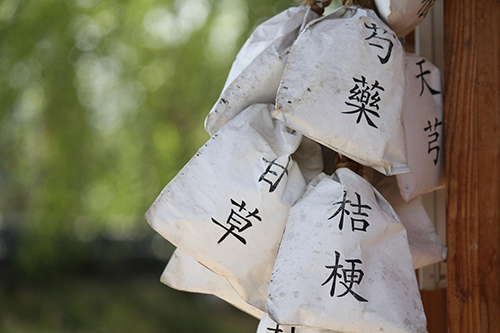 芍藥
天芎
甘草
桔梗